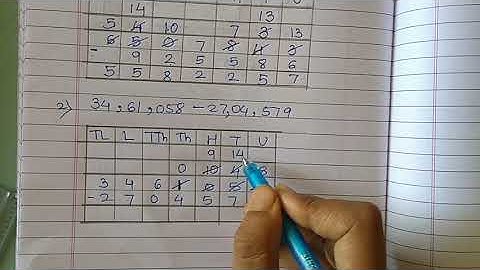 14 13
5 4 10 7 3 13
6 5 0 7 8 4 3
- 9 2 5 5 8 6
5 5 8 2 2 5 7
2) 34,61,058 - 27,04,579
TL L TTh Th H T U
9 14
0 10 4
3 4 6 1 0 5
- 2 7 0 4 5 7